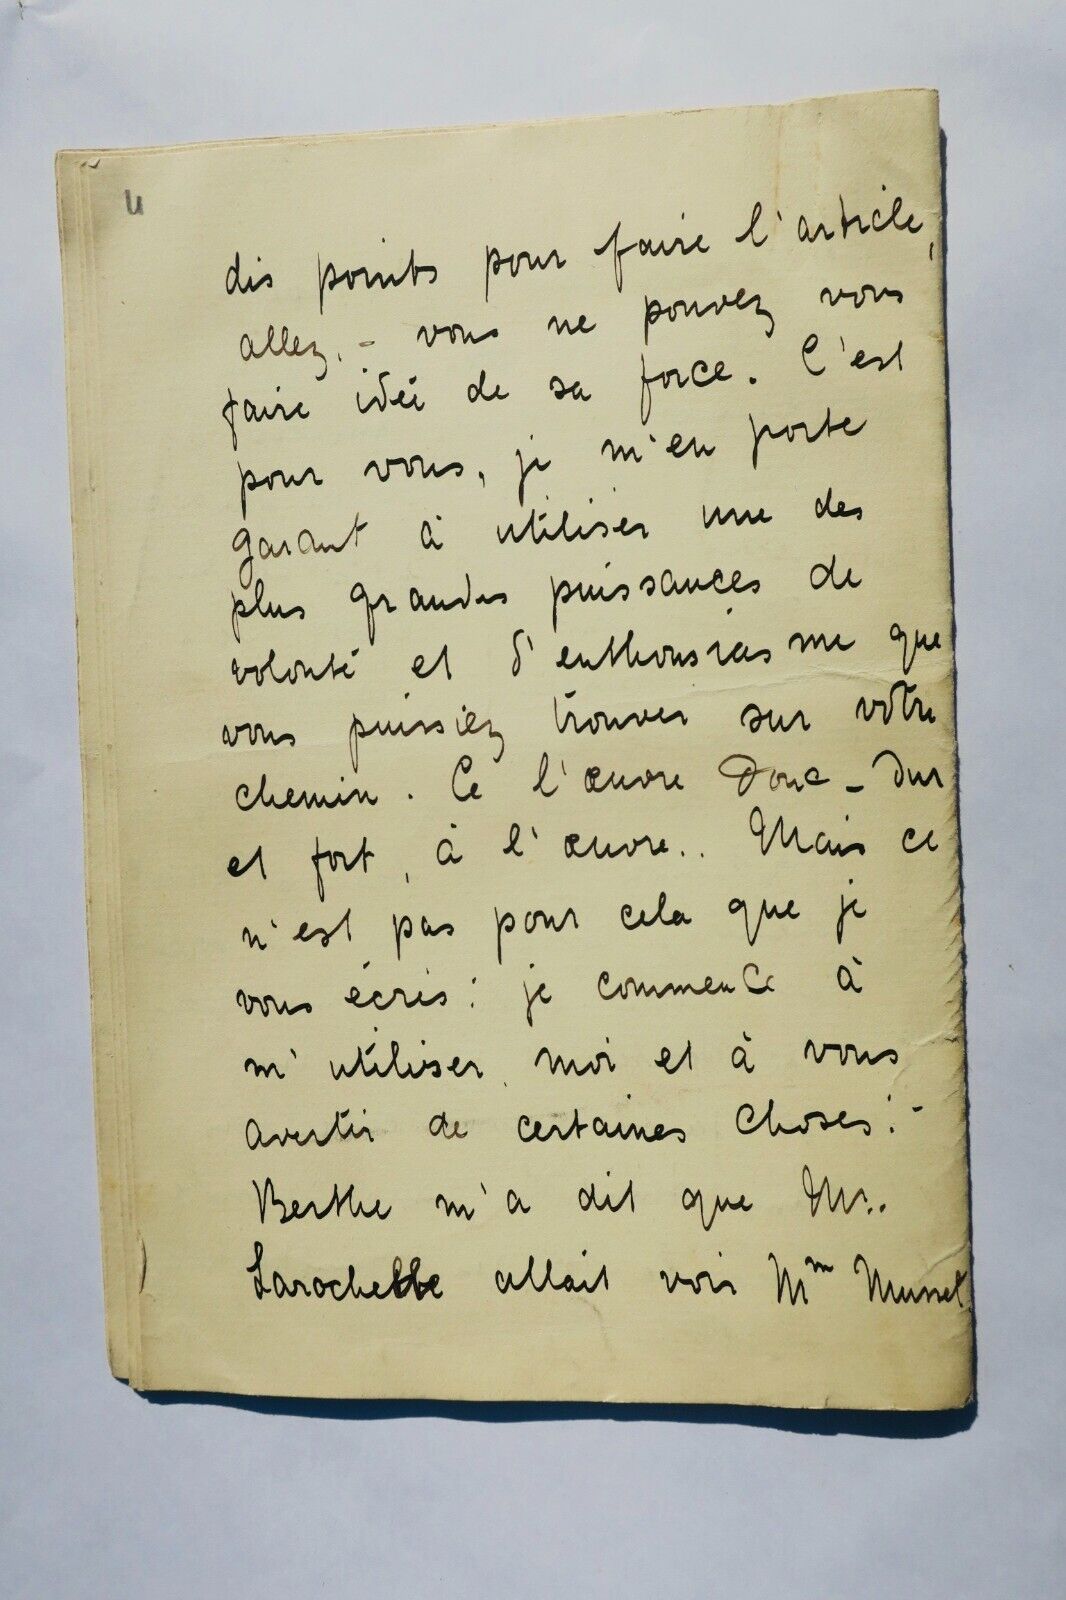 4
dis points pour faire l'article,
allez. - vous ne pouvez vous
faire idée de sa force. C'est
pour vous, je m'en porte
garant à utiliser une des
plus grandes puissances de
volonté et d'enthousiasme que
vous puissiez trouver sur votre
chemin. Ce l'œuvre Donc - dur
et fort, à l'œuvre.. Mais ce
n'est pas pour cela que je
vous écris : je commence à
m'utiliser, moi et à vous
avertir de certaines choses : -
Berthe m'a dit que Mr..
Larochelle allait voir Mm Musset